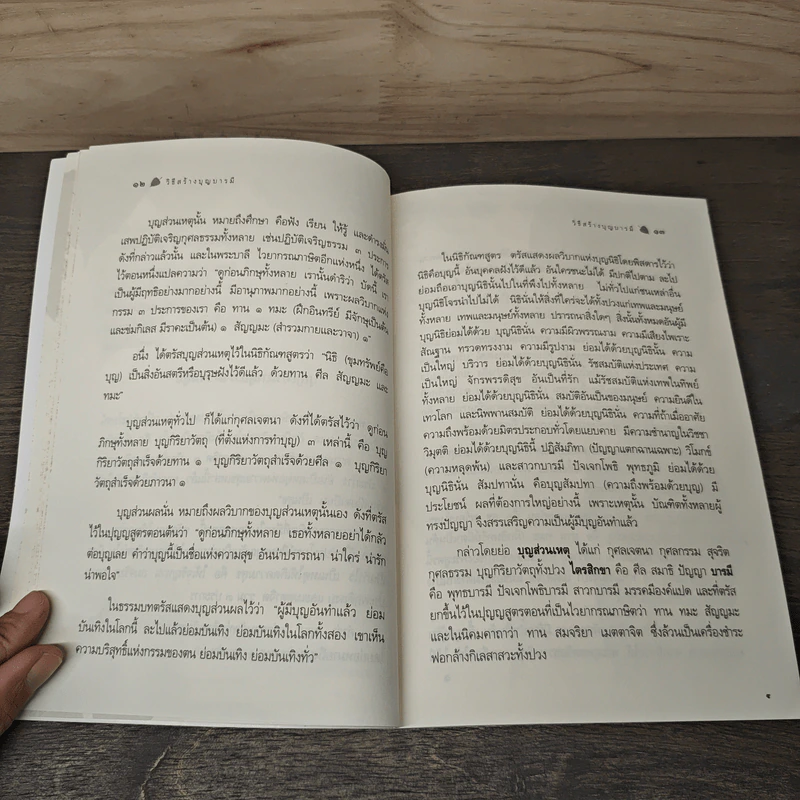 ๑๒ วิธีสร้างบุญบารมี
บุญส่วนเหตุนั้น หมายถึงศึกษา คือฟัง เรียน ให้รู้ และดำรงมั่น
เสพปฏิบัติเจริญกุศลธรรมทั้งหลาย เช่นปฏิบัติเจริญธรรม ๓ ประการ
ดังที่กล่าวแล้วนั้น และในพระบาลี ไวยากรณภาษิตอีกแห่งหนึ่ง ได้ตรัส
ไว้ตอนหนึ่งแปลความว่า "ดูก่อนภิกษุทั้งหลาย เรานั้นดำริว่า บัดนี้ เรา
เป็นผู้มีฤทธิอย่างมากอย่างนี้ มีอานุภาพมากอย่างนี้ เพราะผลวิบากแห่ง
กรรม ๓ ประการของเรา คือ ทาน ๑ ทมะ (ฝึกอินทรีย์ มีจักษุเป็นต้น
และข่มกิเลส มีราคะเป็นต้น) ๑ สัญญมะ (สำรวมกายและวาจา) ๑"
อนึ่ง ได้ตรัสบุญส่วนเหตุไว้ในนิธิกัณฑสูตรว่า "นิธิ (ขุมทรัพย์คือ
บุญ) เป็นสิ่งอันสตรีหรือบุรุษฝังไว้ดีแล้ว ด้วยทาน ศีล สัญญมะ และ
ทมะ"
บุญส่วนเหตุทั่วไป ก็ได้แก่กุศลเจตนา ดังที่ได้ตรัสไว้ว่า ดูก่อน
ภิกษุทั้งหลาย บุญกิริยาวัตถุ (ที่ตั้งแห่งการทำบุญ) ๓ เหล่านี้ คือ บุญ
กิริยาวัตถุสำเร็จด้วยทาน ๑ บุญกิริยาวัตถุสำเร็จด้วยศีล ๑ บุญกิริยา
วัตถุสำเร็จด้วยภาวนา ๑
บุญส่วนผลนั่น หมายถึงผลวิบากของบุญส่วนเหตุนั้นเอง ดังที่ตรัส
ไว้ในปุญญสูตรตอนต้นว่า "ดูก่อนภิกษุทั้งหลาย เธอทั้งหลายอย่าได้กลัว
ต่อบุญเลย คำว่าบุญนี้เป็นชื่อแห่งความสุข อันน่าปรารถนา น่าใคร่ น่ารัก
น่าพอใจ"
ในธรรมบทตรัสแสดงบุญส่วนผลไว้ว่า "ผู้มีบุญอันทำแล้ว ย่อม
บันเทิงในโลกนี้ ละไปแล้วย่อมบันเทิง ย่อมบันเทิงในโลกทั้งสอง เขาเห็น
ความบริสุทธิ์แห่งกรรมของตน ย่อมบันเทิง ย่อมบันเทิงทั่ว"
วิธีสร้างบุญบารมี ๑๓
ในนิธิกัณฑสูตร ตรัสแสดงผลวิบากแห่งบุญนิธิโดยพิสดารไว้ว่า
นิธิคือบุญนี้ อันบุคคลฝังไว้ดีแล้ว อันใครชนะไม่ได้ มีปกติไปตาม ละไป
ย่อมถือเอาบุญนิธินั้นไปในที่พึงไปทั้งหลาย ไม่ทั่วไปแก่ชนเหล่าอื่น
บุญนิธิโจรนำไปไม่ได้ นิธินั่นให้สิ่งที่ใคร่จะได้ทั้งปวงแก่เทพและมนุษย์
ทั้งหลาย เทพและมนุษย์ทั้งหลาย ปรารถนาสิ่งใดๆ สิ่งนั้นทั้งหมดอันผู้มี
บุญนิธิย่อมได้ด้วย บุญนิธินั่น ความมีผิวพรรณงาม ความมีเสียงไพเราะ
สัณฐาน ทรวดทรงงาม ความมีรูปงาม ย่อมได้ด้วยบุญนิธินั้น ความ
เป็นใหญ่ บริวาร ย่อมได้ด้วยบุญนิธินั้น รัชสมบัติแห่งประเทศ ความ
เป็นใหญ่ จักรพรรดิสุข อันเป็นที่รัก แม้รัชสมบัติแห่งเทพในทิพย์
ทั้งหลาย ย่อมได้ด้วยบุญนิธินั้น สมบัติอันเป็นของมนุษย์ ความยินดีใน
เทวโลก และนิพพานสมบัติ ย่อมได้ด้วยบุญนิธินั้น ความที่ถ้าเมื่ออาศัย
ความถึงพร้อมด้วยมิตรประกอบทั่วโดยแยบคาย มีความชำนาญในวิชชา
วิมุตติ ย่อมได้ด้วยบุญนิธินี้ ปฏิสัมภิทา (ปัญญาแตกฉานเฉพาะ) วิโมกข์
(ความหลุดพ้น) และสาวกบารมี ปัจเจกโพธิ พุทธภูมิ ย่อมได้ด้วย
บุญนิธินั่น สัมปทานั่น คือบุญสัมปทา (ความถึงพร้อมด้วยบุญ) มี
ประโยชน์ ผลที่ต้องการใหญ่อย่างนี้ เพราะเหตุนั้น บัณฑิตทั้งหลายผู้
ทรงปัญญา จึงสรรเสริญความเป็นผู้มีบุญอันทำแล้ว
กล่าวโดยย่อ บุญส่วนเหตุ ได้แก่ กุศลเจตนา กุศลกรรม สุจริต
กุศลธรรม บุญกิริยาวัตถุทั้งปวง ไตรสิกขา คือ ศีล สมาธิ ปัญญา บารมี
คือ พุทธบารมี ปัจเจกโพธิบารมี สาวกบารมี มรรคมีองค์แปด และที่ตรัส
ยกขึ้นไว้ในปุญญสูตรตอนที่เป็นไวยากรณภาษิตว่า ทาน ทมะ สัญญมะ
และในนิคมคาถาว่า ทาน สมจริยา เมตตาจิต ซึ่งล้วนเป็นเครื่องชำระ
ฟอกล้างกิเลสาสวะทั้งปวง